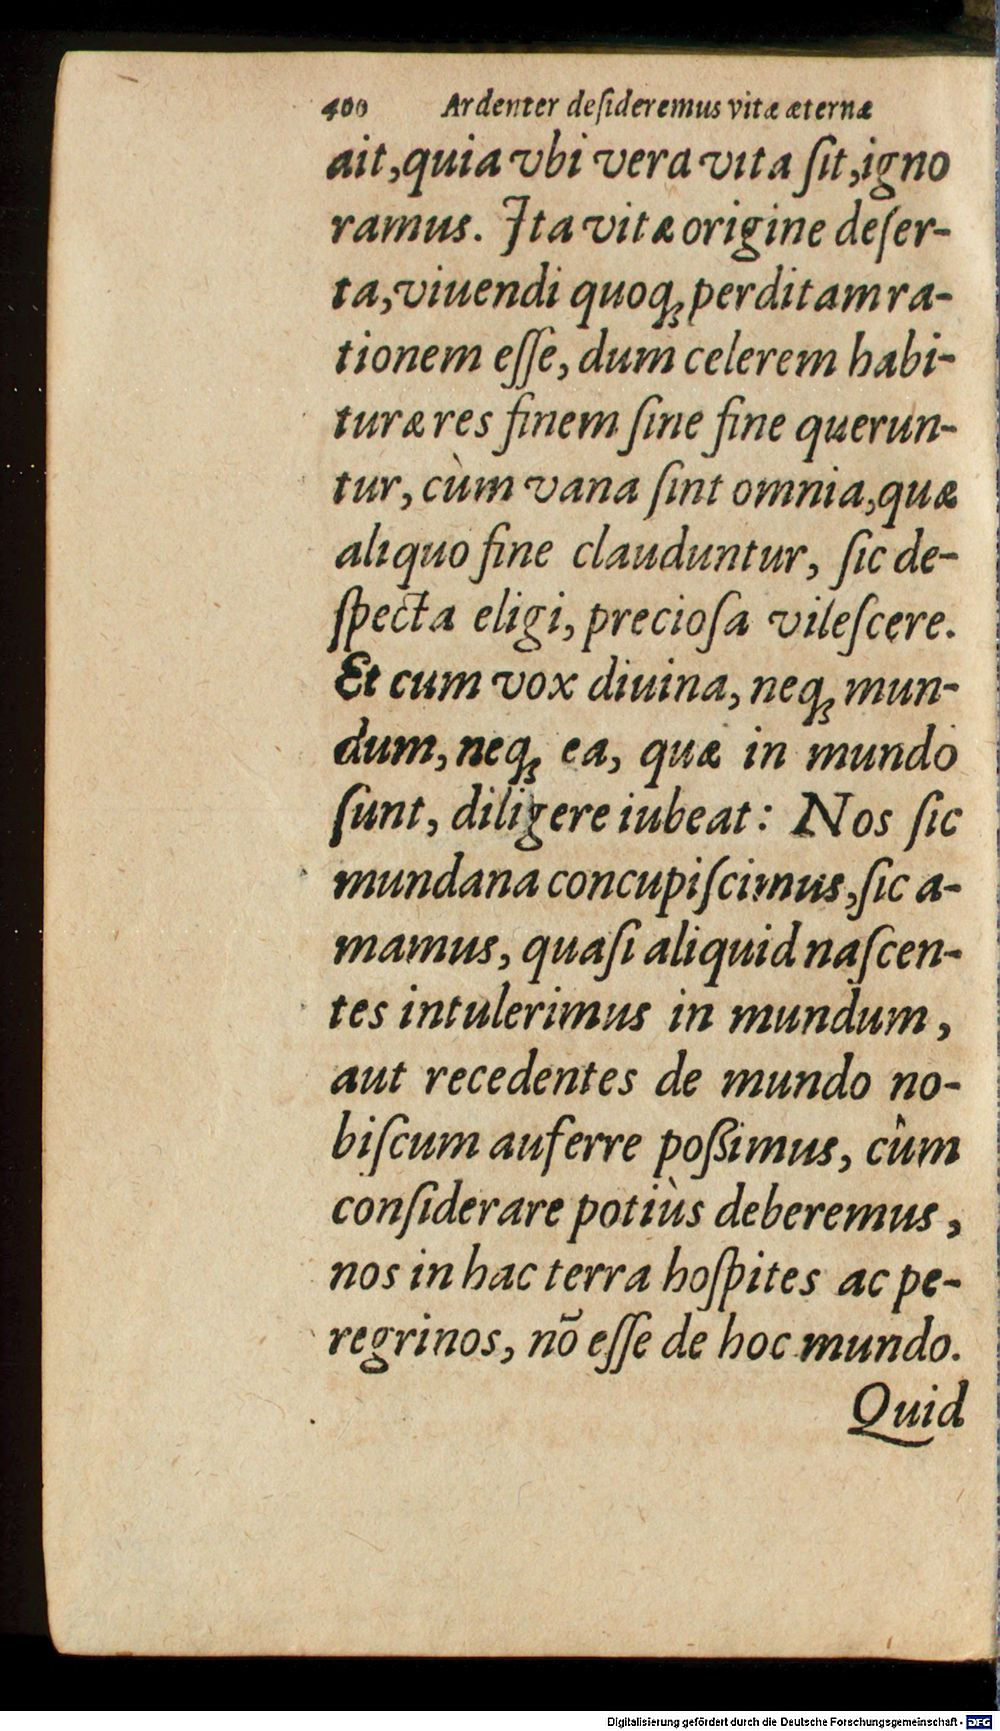 400 Ardenter deſideremus vitæ æternæ
ait, quia vbi vera vita ſit, igno
ramus. Ita vitæ origine deſer-
ta, viuendi quoq́ꝫ perditam ra-
tionem eſſe, dum celerem habi-
turæ res finem ſine fine querun-
tur, cùm vana ſint omnia, quæ
aliquo fine clauduntur, ſic de-
ſpecta eligi, precioſa vileſcere.
Et cum vox diuina, neqꝫ mun-
dum, neqꝫ ea, quæ in mundo
ſunt, diligere iubeat: Nos ſic
mundana concupiſcimus, ſic a-
mamus, quaſi aliquid naſcen-
tes intulerimus in mundum,
aut recedentes de mundo no-
biſcum auferre poßimus, cùm
conſiderare potiùs deberemus,
nos in hac terra hoſpites ac pe-
regrinos, nõ eſſe de hoc mundo.
Quid
Digitalisierung gefördert durch die Deutsche Forschungsgemeinschaft - DFG